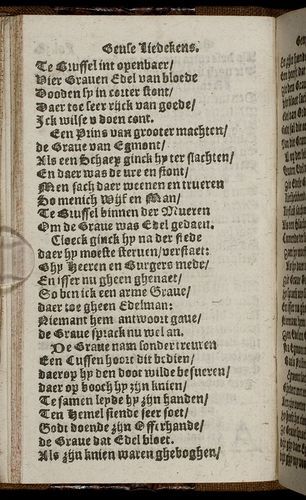 Geuse Liedekens.
Te Brussel int openbaer/
Vier Grauen Edel van bloede
Dooden sy in corter stont/
Daer toe seer rijck van goede/
Ick wilse v doen cont.
Een Prins van grooter machten/
de Graue van Egmont/
Als een Schaep ginck hy ter slachten/
En daer was de vre en stont/
Men sach daer weenen en trueren
So menich Wijf en Man/
Te Brussel binnen der Mueren
Om de Graue was Edel gedaen.
Cloeck ginck hy na der stede
daer hy moeste steruen/verstaet:
Ghy Heeren en Burgers mede/
En isser nu gheen ghenaet/
So ben ick een arme Graue/
daer toe gheen Edelman:
Niemant hem antwoort gaue/
de Graue sprack nu wel an.
De Graue nam sonder treuren
Een Cussen hoort dit bedien/
daerop hy den doot wilde besueren/
daer op booch hy zijn knien/
Te samen leyde hy zijn handen/
Ten Hemel siende seer soet/
Godt doende zijn Offerhande/
de Graue dat Edel bloet.
Als zijn knien waren gheboghen/